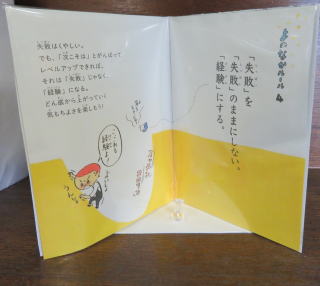 よのなかルール 4
「失敗」を
「失敗」のままにしない。
「経験」にする。
失敗はくやしい。
でも、「次こそは」とがんばって
レベルアップできれば、
それは「失敗」じゃなく、
「経験」になる。
どん底から上がっていく
気もちよさを楽しもう！